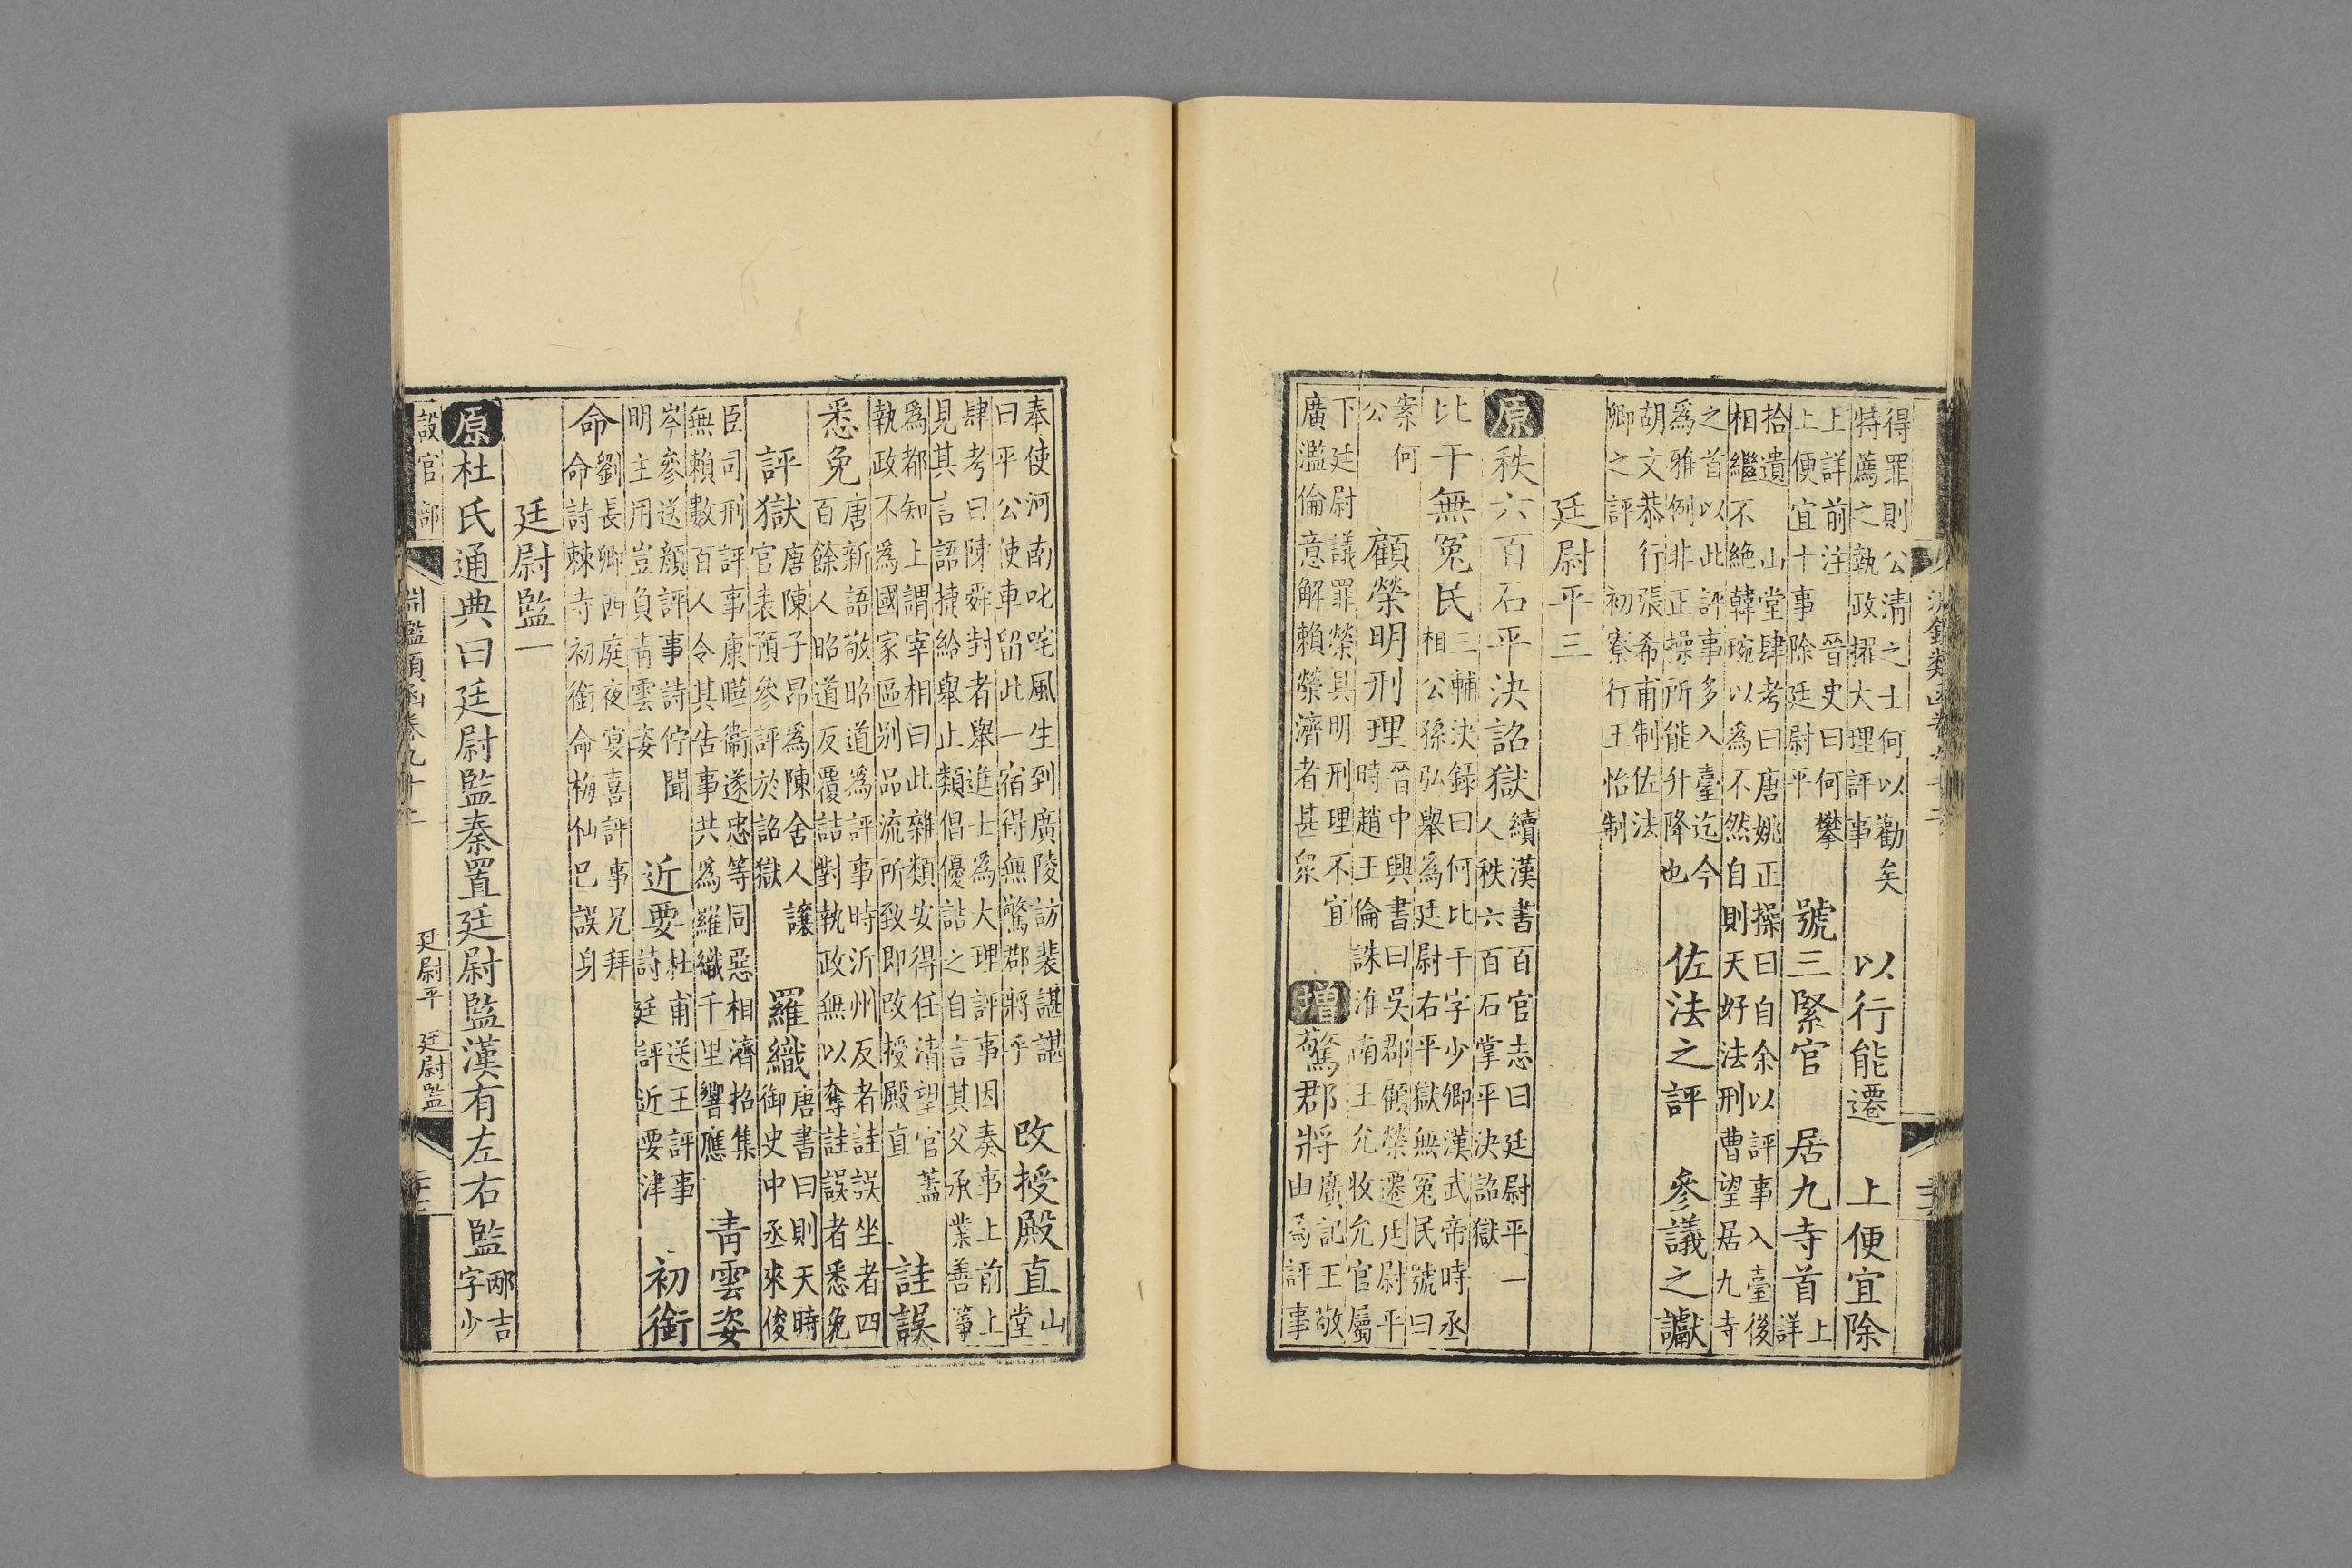 淵鑑類函卷九十二
得罪則公清之士何以勸矣
特薦之執政擢大理評事
以行能遷 上便宜除
上詳前注 晉史曰何攀
上便宜十事除廷尉平
號三緊官 居九寺首
上
詳
拾遺 山堂肆考曰唐姚正操曰自余以評事入臺後
相繼不絶韓琬以為不然自則天好法刑曹望居九寺
之首以此評事多入臺迄今
為雅例非正操所能升降也
佐法之評 參議之讞
胡文恭行張希甫制佐法
卿之評 初寮行王怡制
廷尉平三
原秩六百石平決詔獄
續漢書百官志曰廷尉平一
人秩六百石掌平決詔獄
比干無冤民
三輔決録曰何比干字少卿漢武帝時丞
相公孫弘舉為廷尉右平獄無冤民號曰
案何
公
顧榮明刑理
晉中興書曰吳郡顧榮遷廷尉平
時趙王倫誅淮南王允收允官屬
下廷尉議罪榮具明刑理不宜
廣濫倫意解賴榮濟者甚衆
增驚郡將
廣記王敬
由為評事
奉使河南叱咤風生到廣陵訪裴諶諶
曰平公使車留此一宿得無驚郡將乎
改授殿直
山
堂
肆考曰陳舜封者舉進士為大理評事因奏事上前上
見其言語捷給舉止類倡優詰之自言其父承業善箏
為都知上謂宰相曰此雜類安得任清望官蓋
執政不為國家區别品流所致即改授殿直
詿誤
悉免
唐新語敬昭道為評事時沂州反者詿誤坐者四
百餘人昭道反覆詰對執政無以奪詿誤者悉免
評獄
唐陳子昂為陳舍人讓
官表預參評於詔獄
羅織
唐書曰則天時
御史中丞來俊
臣司刑評事康暐衞遂忠等同惡相濟招集
無賴數百人令其告事共為羅織千里響應
青雲姿
岑參送顔評事詩佇聞
明主用豈負青雲姿
近要
杜甫送王評事
詩廷評近要津
初銜
命
劉長卿西庭夜宴喜評事兄拜
命詩棘寺初銜命梅仙已誤身
廷尉監一
原杜氏通典曰廷尉監秦置廷尉監漢有左右監
邴吉
字少
設官部
淵鑑類函卷九十二
廷尉平 廷尉監